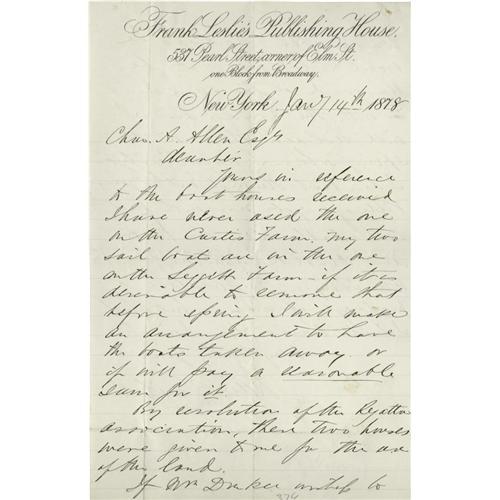 Frank Leslie's Publishing House.
537 Pearl Street, corner of Elm St.
one Block from Broadway.
New York Jany 14th 1878
Chas. A. Allen Esqr
Dear Sir
Yours in reference
to the boat houses received
I have never used the one
on the Curtis Farm, my two
sail boats are in the one
on the Leggett Farm - if it is
desirable to remove that
before spring I will make
an arrangement to have
the boats taken away or
if will pay a reasonable
sum for it.
By resolution of the Regatta
association, these two houses
were given to me for the use
of the land.
If Mr Draker wishes to
374